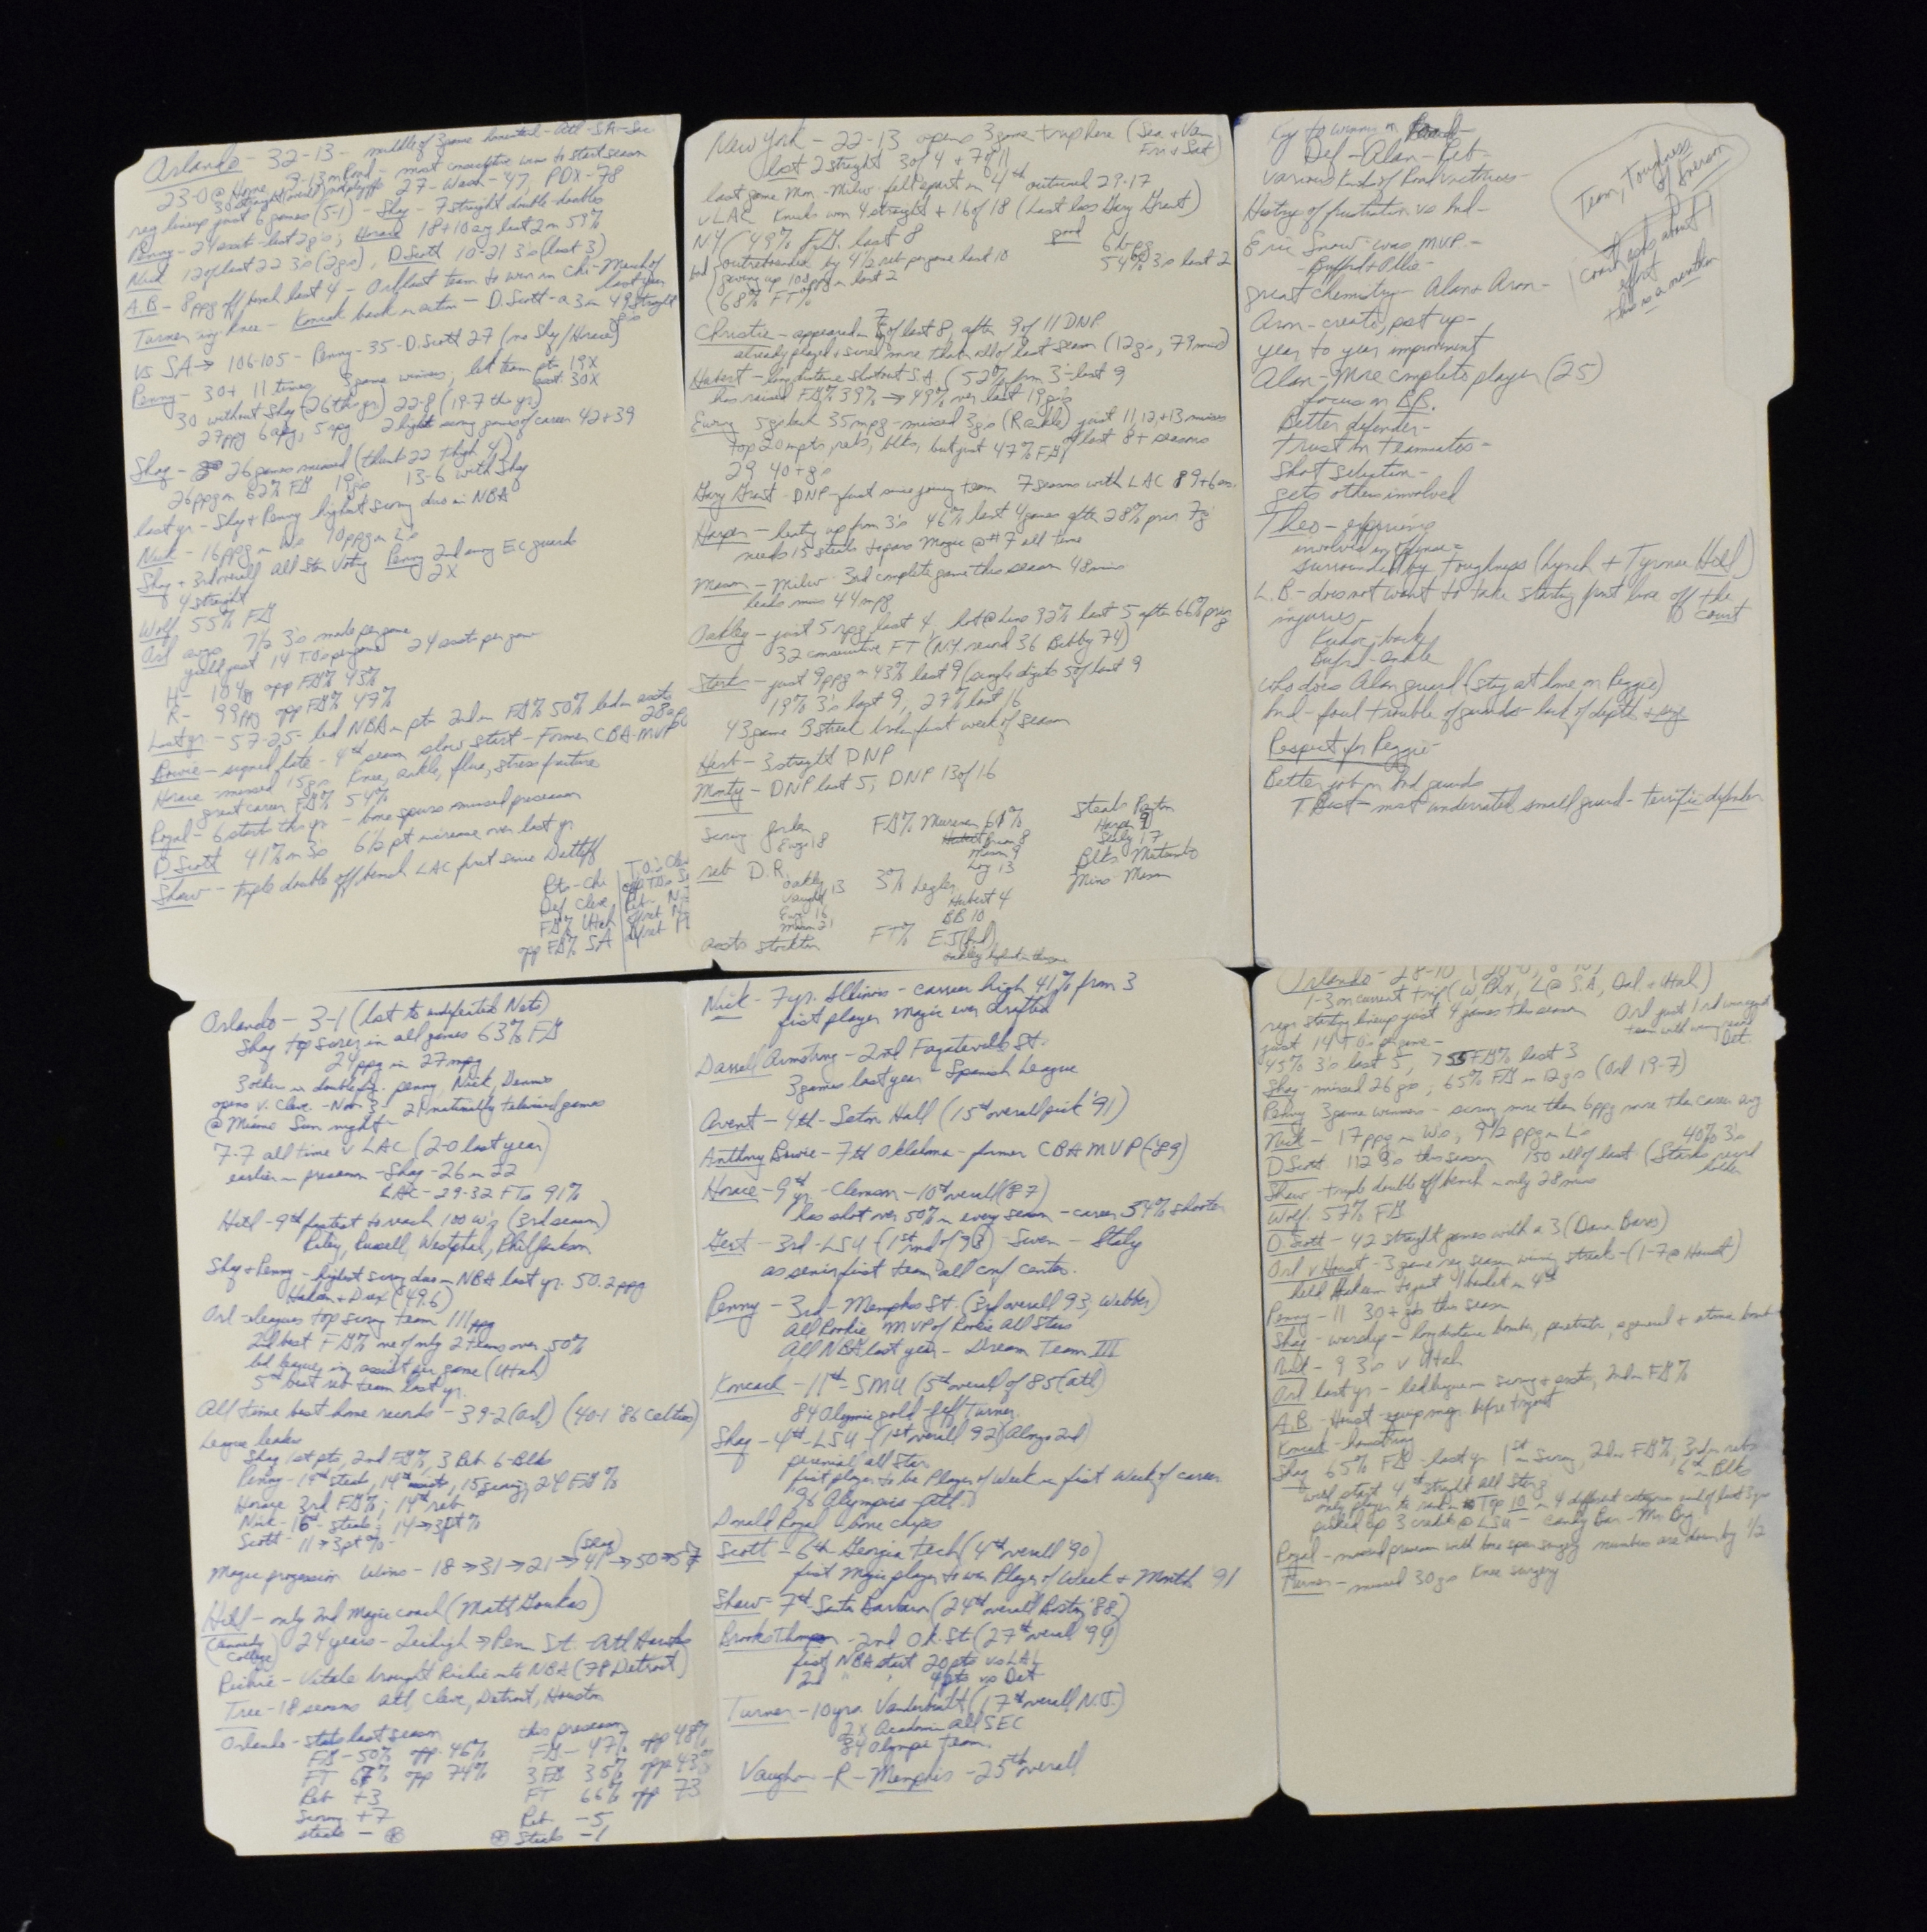 Orlando - 32-13 - middle of 3 game homestand - Atl - SA - Sac
23-0 @ Home most consecutive wins to start season
27 - Wash - '47, PDX - '78
reg lineup just 6 games (5-1) - Shaq - 7 straight double-doubles
Penny - 24 last 2 g's; Horace 18 + 10 avg last 2 on 59%
Nick 12 of last 22 3's (2 g's), D Scott 10-21 3's (last 3)
A.B - 8 ppg off bench last 4 - Orl last team to win in Chi - March of last year
Turner inj knee - Koncak back in action - D. Scott - a 3 in 49 straight g's
vs SA → 106-105 - Penny - 35 - D. Scott 27 (no Shaq/Horace)
Penny - 30+ 11 times 3 game winners; led team pts 19X
asst 30X
30 without Shaq (26 this yr) 22-8 (19-7 this yr)
27 ppg 6 apg, 5 rpg 2 highest scoring games of career 42 + 39
Shaq - 26 games missed (thumb 22 thigh 4)
26 ppg on 62% FG 19 g's 13-6 with Shaq
last yr - Shaq + Penny highest scoring duo in NBA
Nick - 16 ppg in W's 10 ppg in L's
Shaq + 3rd overall All Star Voting Penny 2nd among EC guards
4 straight 2X
Wolf 55% FG
Orl avgs 7½ 3's made per game
yield just 14 T.O's per game 24 assts per game
H - 104 ppg opp FG% 43%
R - 99 ppg opp FG% 47%
Last yr - 57-25 - led NBA in pts 2nd in FG% 50% led in assts
Bowie - signed late - 4th season slow start - Former CBA MVP
Horace missed 15 g's knee, ankle, flu, stress fracture
great career FG% 54%
Royal - 6 starts this yr - bone spurs missed preseason
D Scott 41% on 3's 6½ pt increase over last yr
Shaw - triple double off bench LAC first since Detlef
Pts - Chi
Def Cleve
FG% Utah
opp FG% SA
New York - 22-13 opens 3 game trip here (Sea + Van
Fri + Sat)
last 2 straight 3 of 4 + 7 of 11
last game Mon - Milw - fell apart in 4th outscored 29-17
v LAC Knicks won 4 straight + 16 of 18 (last loss Gary Grant)
NY (49% FG last 8 good 6 bpg
bad outrebounded by 4½ reb per game last 10 54% 3's last 2
giving up 108 ppg in last 2
68% FT%
Christie - appeared in 7 of last 8, after 9 of 11 DNP
already played + scored more than all of last season (12 g's, 79 min)
Hubert - long distance shootout S.A. (52% from 3 - last 9
has raised FG% 39% → 49% over last 19 g's
Ewing 5 g's back 35 mpg - missed 3 g's (R ankle) just 11, 12, + 13 misses
of last 8+ seasons
top 20 in pts, rebs, blks, but just 47% FG
29 40+ g's
Gary Grant - DNP - first since joining team 7 seasons with LAC 8 9 + 6 as.
Harper - heating up from 3's 46% last 4 games after 28% prior 7 g
needs 15 steals to pass Magic @ #7 all time
Mason - Milw - 3rd complete game this season 48 mins
leads mins 44 mpg
Oakley - just 5 rpg last 4, lot @ line 92% last 5 after 66% prior 8
32 consecutive FT (N.Y. record 36 Bibby 74)
Starks - just 9 ppg on 43% last 9 (single digits 5 of last 9
19% 3's last 9, 27% last 16
43 game 3 streak broken first week of season
Herb - 3 straight DNP
Monty - DNP last 5, DNP 13 of 16
Scoring Jordan FG% Muresan 61% Steals Payton
Ewing 18 Mason 9 Harper 9
Starks 17
reb D.R. Blks Mutombo
Oakley 13 3% Legler Mins - Mason
Vaught Hubert 4
Ewing 16 BB 10
Mason 21
assts Stockton FT% E.J (Ind)
Oakley highest in this game
Key to winning in Road -
Def - Alan - Reb -
Various kinds of Road victories -
History of frustration vs Ind -
Eric Snow - was MVP. -
- Buford + Ollie -
great chemistry - Alan + Aron -
Aron - create, post up -
year to year improvement
Alan - More complete player (25)
focus on BB.
Better defender -
Trust in Teammates -
Shot selection -
gets others involved
Theo - offensive
involved in offense =
surrounded by toughness (Lynch + Tyrone Hill)
L.B - does not want to take starting front line off the
court
injuries -
Kukoc - back
Buford - ankle
Who does Alan guard (stay at home on Reggie)
Ind - foul trouble of guards - lack of depth + size
Respect for Reggie -
Better job on Ind guards
T. Best - most underrated small guard - terrific defender
Team, Toughness
of Iverson
Coach asks about
effort
this is a
Orlando - 3-1 (lost to undefeated Nets)
Shaq top scorer in all games 63% FG
24 ppg in 27 mpg
3 others in double fig. Penny, Nick, Dennis
opens v. Cleve - Nov. 3 - 21 nationally televised games
@ Miami Sun night -
7-7 all time v LAC (2-0 last year)
earlier in preseason - Shaq - 26 in 22
LAC - 29-32 FTs 91%
Hill - 9th fastest to reach 100 W's (3rd season)
Riley, Russell, Westphal, Phil Jackson
Shaq + Penny - highest scoring duo in NBA last yr. 50.2 ppg
Hakeem + Drex (49.6)
Orl - leagues top scoring team 111 ppg
2nd best FG% one of only 2 teams over 50%
led league in assist per game (Utah)
5th best reb team last yr.
All time best home records - 39-2 (Orl) (40-1 '86 Celtics)
League leaders
Shaq 1st pts, 2nd FG%, 3 Reb 6 - Blks
Penny - 19th steals, 14th assists, 15 scoring, 24 FG%
Horace 3rd FG%; 14th reb
Nick - 16th - steals; 14 → 3pt%
Scott - 11 → 3pt% -
(Shaq)
Magic progression Wins - 18 → 31 → 21 → 41 → 50 → 57
Hill - only 2nd Magic coach (Matt Goukas)
(Kennedy College) 24 years - Lehigh → Penn St. - Atl Hawks
Richie - Vitale brought Richie into NBA (78 Detroit)
Tree - 18 seasons Atl, Cleve, Detroit, Houston
Orlando - stats last season this preseason
FG - 50% opp 46% FG - 47% opp 48%
FT 67% opp 74% 3FG 35% opp 43%
Reb +3 FT 66% opp 73
Scoring +7 Reb -5
steals - Steals -1
Nick - 7 yr. Illinois - career high 41% from 3
first player Magic ever drafted
Darrell Armstrong - 2nd Fayetteville St.
3 games last year - Spanish League
Avent - 4th - Seton Hall (15th overall pick '91)
Anthony Bowie - 7th Oklahoma - former CBA MVP ('89)
Horace - 9th yr. - Clemson - 10th overall (87)
has shot over 50% in every season - career 54% shooter
Gert - 3rd - LSU - (1st rnd of 93) - Siena - Italy
as senior first team all conf center.
Penny - 3rd - Memphis St. (3rd overall 93, Webber)
All Rookie MVP of Rookie All Stars
All NBA last year - Dream Team III
Koncak - 11th - SMU (5th overall of 85 (Atl)
84 Olympic gold - Jeff Turner
Shaq - 4th - LSU - (1st overall 92) (Alonzo 2nd)
perennial all star
first player to be Player of Week in first Week of career
96 Olympics - Atl.
Donald Royal - bone chips
Scott - 6th Georgia Tech (4th overall '90)
first Magic player to win Player of Week + Month '91
Shaw - 7th Santa Barbara (24th overall Boston '88)
Brooks Thompson - 2nd Ok. St. (27th overall '94)
first NBA start 20 pts vs LAL
2nd " " vs Det
Turner - 10 yrs. Vanderbilt (17th overall N.J.)
2X Academic All SEC
84 Olympic Team.
Vaughn - R - Memphis - 25th overall
Orlando - 28-10
1-3 on current trip (W, Phx, L @ S.A., Dal + Utah)
regn starting lineup just 4 games this season
just 14 T.O's per game -
45% 3's last 5, > 55 FG% last 3
Shaq - missed 26 g's; 65% FG in 12 g's (Orl 19-7)
Penny 3 game winners - scoring more than 6 ppg more than career avg
Nick - 17 ppg in W's; 9½ ppg in L's 40% 3's
D Scott 112 3's this season 150 all of last (Starks record
holder
Shaw - triple double off bench in only 28 mins
Wolf. 57% FG
D. Scott - 42 straight games with a 3 (Dana Barros)
Orl v Houst - 3 game reg season winning streak - (1-7 @ Houst)
held Hakeem to just 1 basket in 4th
Penny - 11 30+ g's this season
Shaq - warship - long distance bomber, penetrator, a general + atomic bomb
Nick - 9 3's v Utah
Orl last yr - led league in scoring + assts, 2nd in FG%
A.B - Houst - equip mgr. before tryout
Koncak - hamstring
Shaq 65% FG - last yr 1st in Scoring, 2nd in FG%, 3rd in rebs
6th in Blks
will start 4th straight all star g
only player to rank in Top 10 in 4 different categories each of last 3 yrs
picked up 3 credits @ LSU - Candy Bar - Mr. Big
Royal - missed preseason with bone spur surgery numbers are down by ½
Turner - missed 30 g's Knee surgery